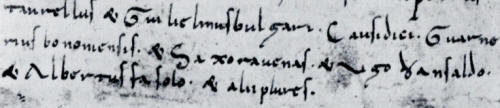 taurellus & Guilielmus bulgari. Causidici. Guarne
rius bononiensis. & Saxo ravenas. & Ugo Vansaldo.
& Albertus fasolo. & alii plures.